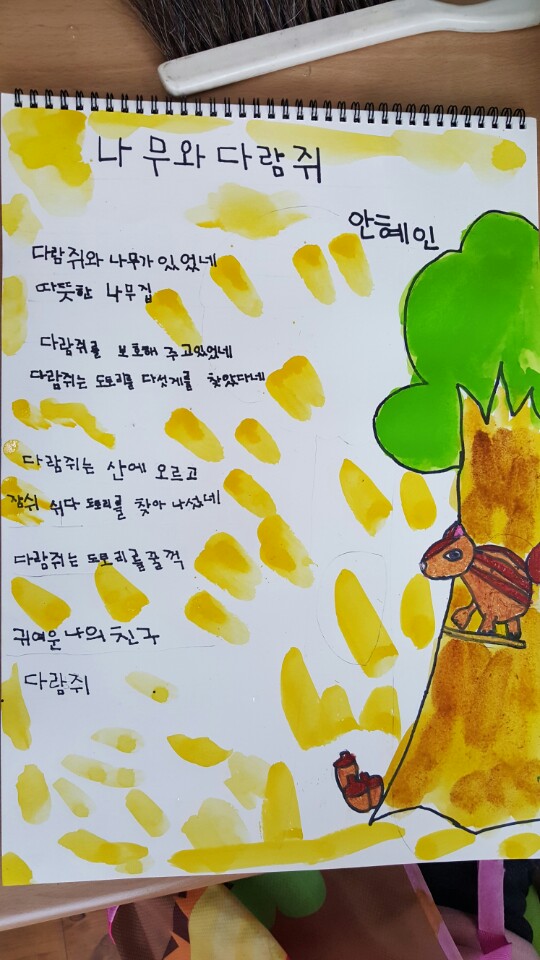 나무와 다람쥐
안혜인
다람쥐와 나무가 있었네
따뜻한 나무집
다람쥐를 보호해 주고있었네
다람쥐는 도토리를 다섯게를 찾았다네
다람쥐는 산에 오르고
잠쉬 쉬다 도토리를 찾아 나섰네
다람쥐는 도토리를 꿀꺽
귀여운 나의 친구
다람쥐